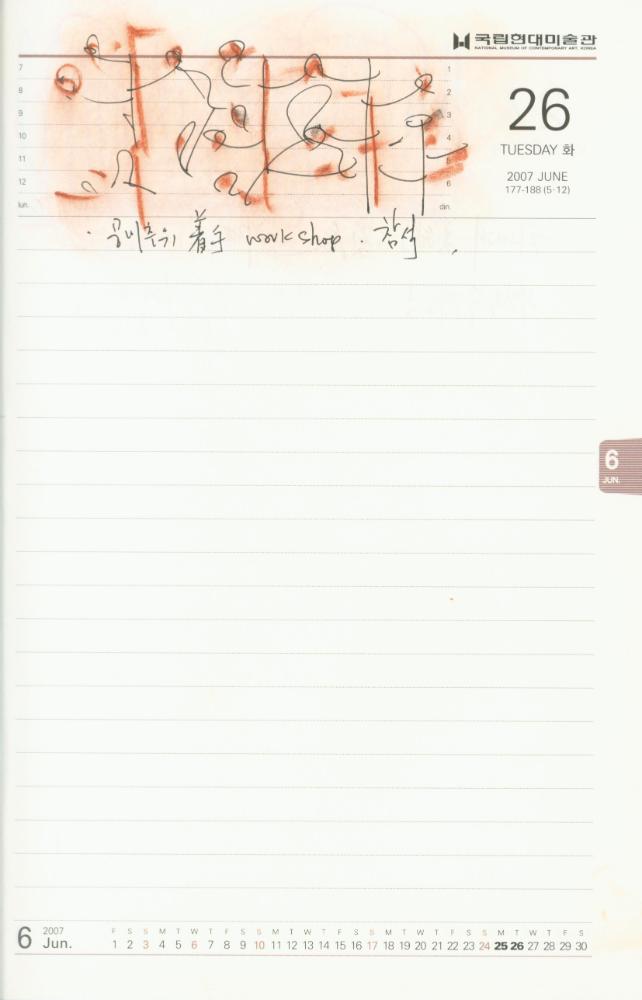 국립현대미술관
NATIONAL MUSEUM OF CONTEMPORARY ART, KOREA
7 1
8 2
9 3
10 4
11 5
12 6
lun. din.
26
TUESDAY 화
2007 JUNE
177-188 (5·12)
· 공비추위 着手 workshop . 참석 .
6
JUN.
6 2007 Jun.
F S S M T W T F S S M T W T F S S M T W T F S S M T W T F S
1 2 3 4 5 6 7 8 9 10 11 12 13 14 15 16 17 18 19 20 21 22 23 24 25 26 27 28 29 30